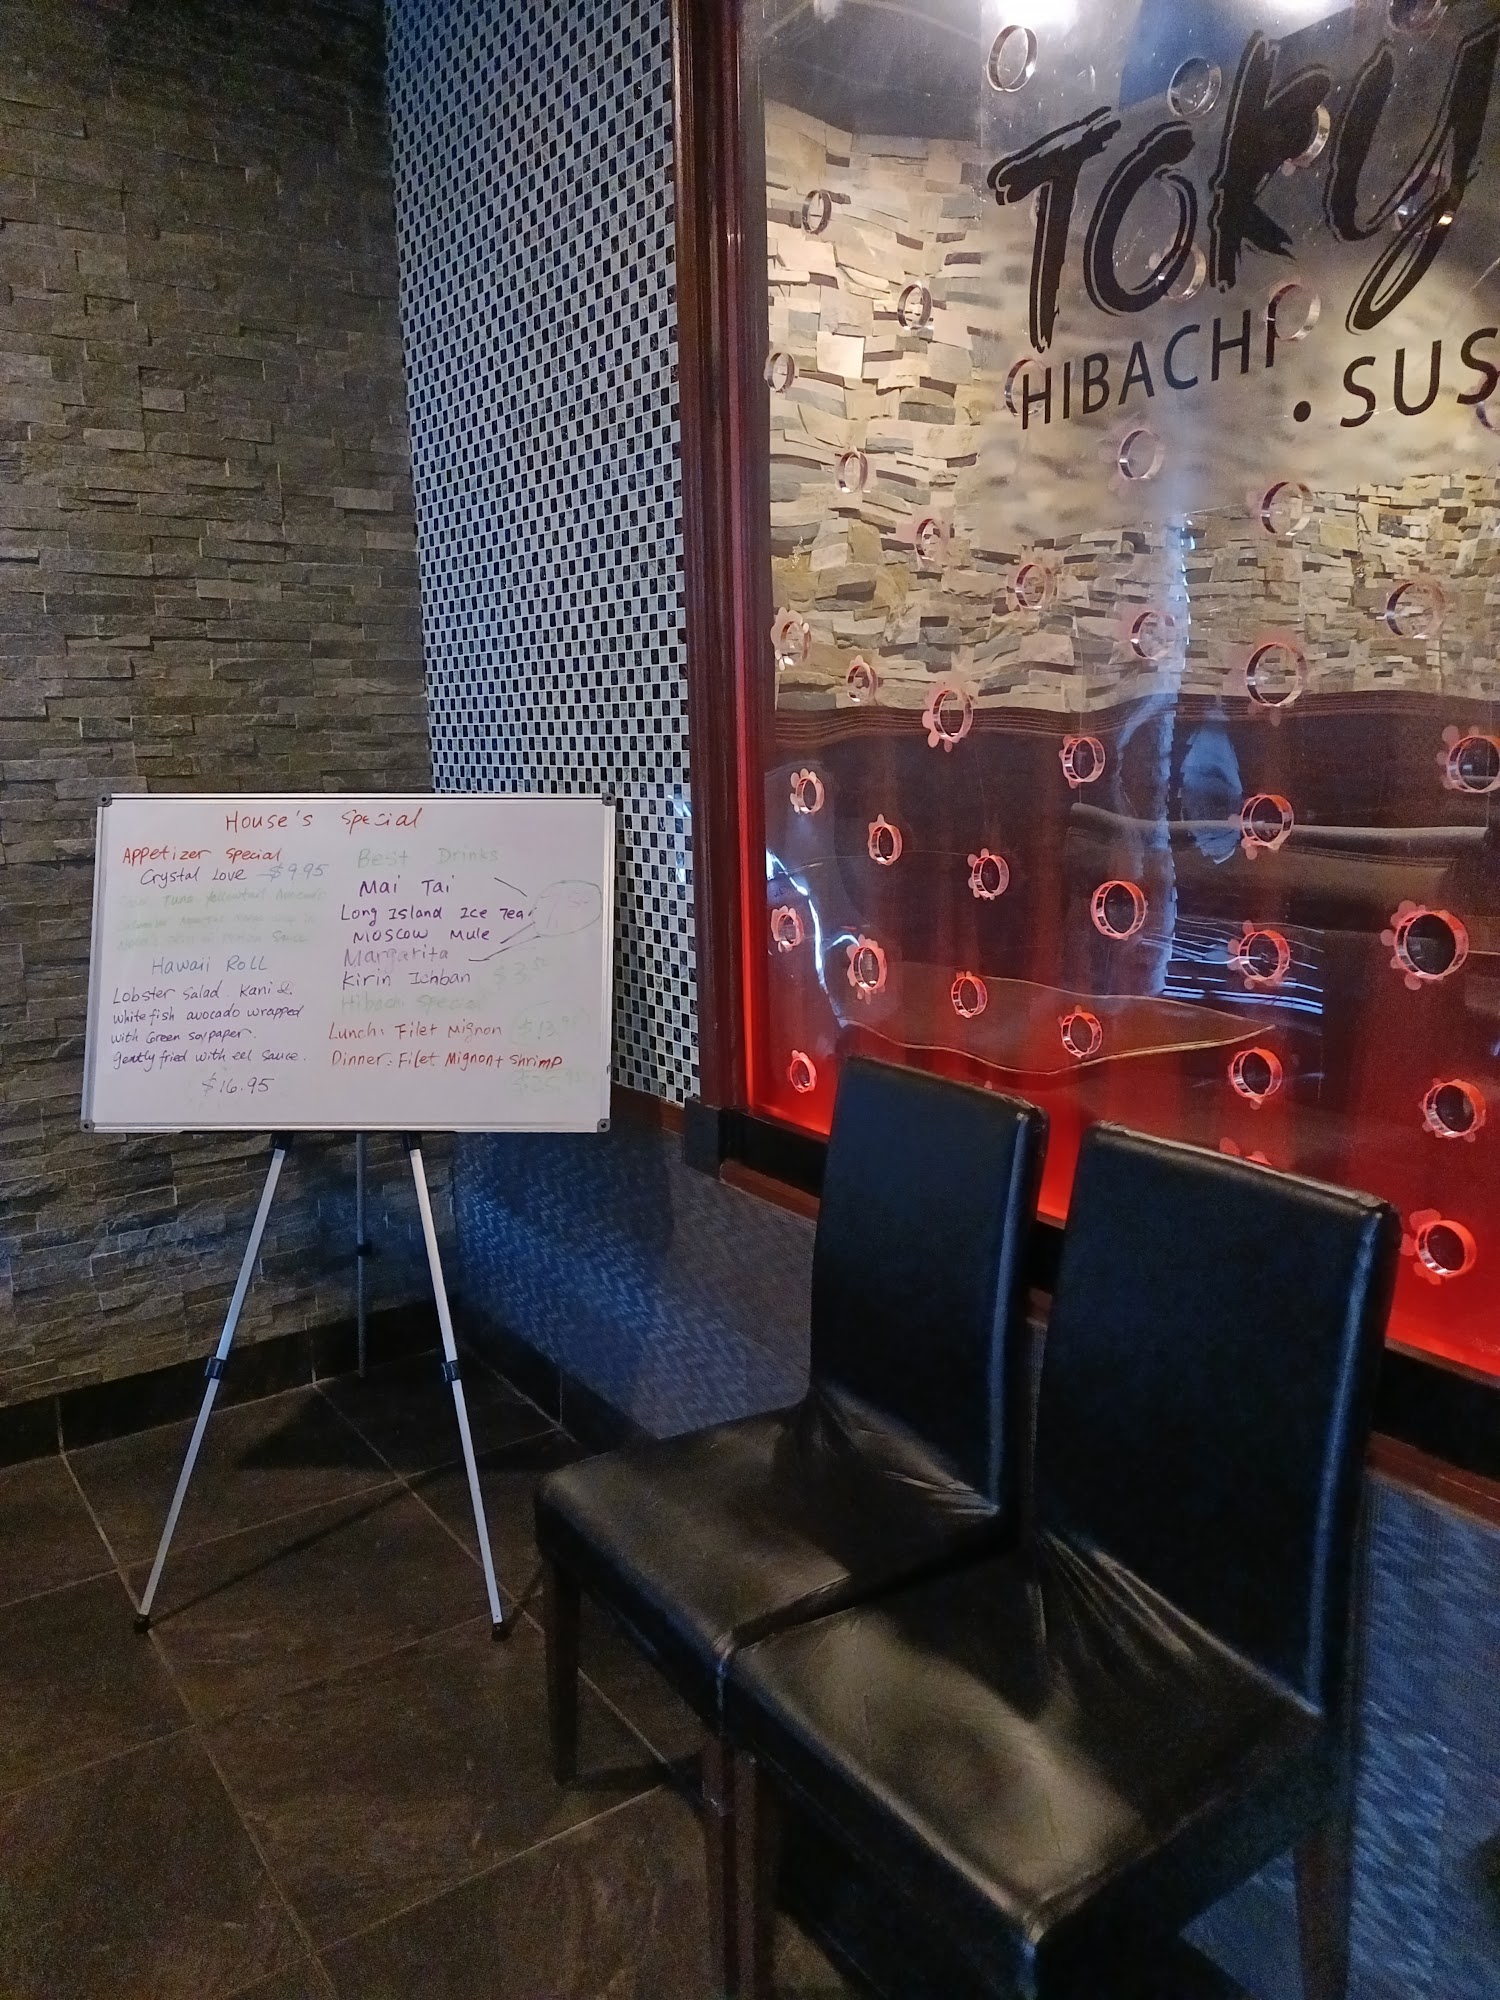 TOKY
HIBACHI • SUS
House's Special
Appetizer Special
Crystal Love - $9.95
Tuna Yellowtail Avocado
Sauce
Hawaii Roll
Lobster Salad, Kani &
white fish avocado wrapped
with Green soy paper.
gently fried with eel sauce.
$16.95
Best Drinks
Mai Tai
Long Island Ice Tea
Moscow Mule
Margarita
Kirin Ichban $3.50
Hibachi Special
Lunch: Filet Mignon
Dinner: Filet Mignon + Shrimp